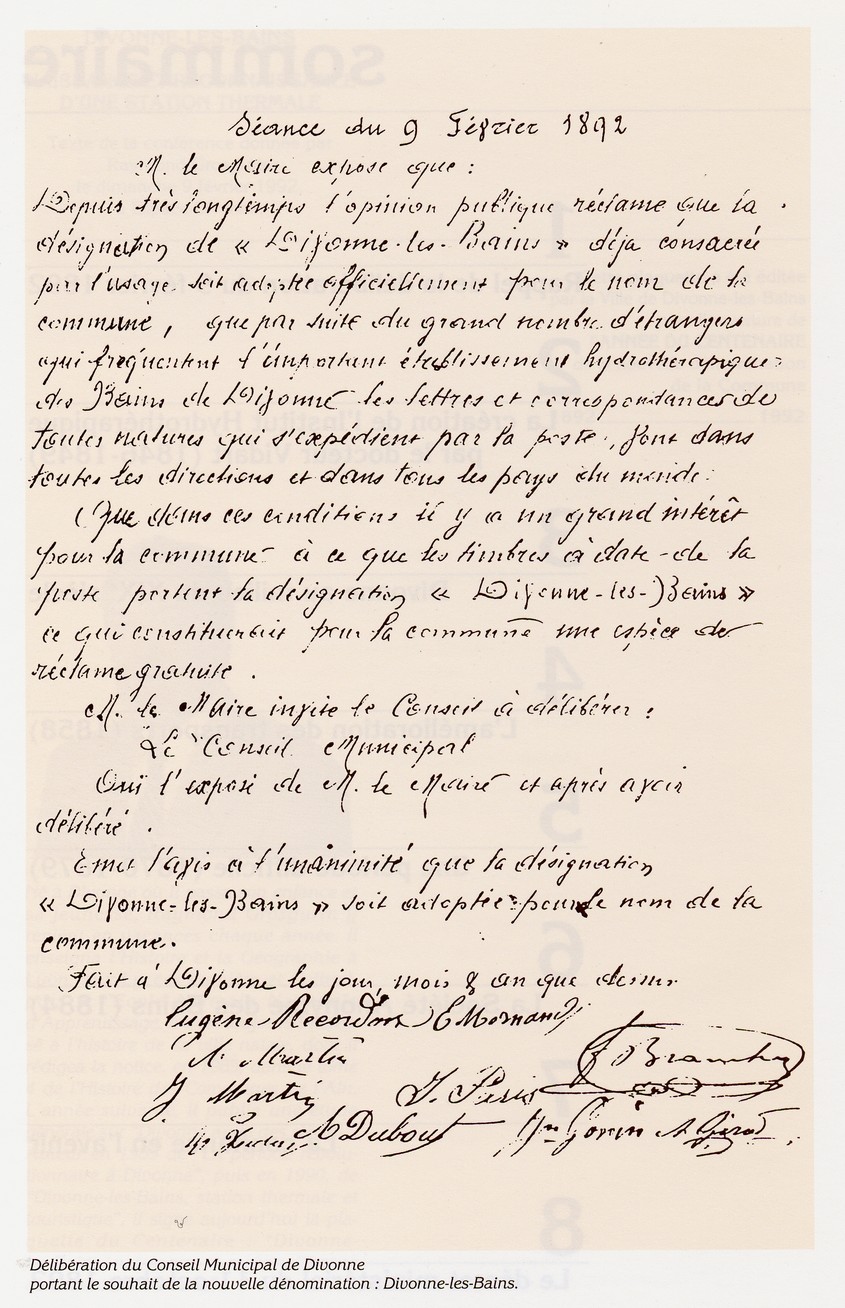 Séance du 9 Février 1892
M. le Maire expose que :
Depuis très longtemps l'opinion publique réclame que la
désignation de « Divonne-les-Bains » déja consacrée
par l'usage soit adoptée officiellement pour le nom de la
commune, que par suite du grand nombre d'étrangers
qui fréquentent l'important établissement hydrothérapique
des Bains de Divonne les lettres et correspondances de
toutes natures qui s'expédient par la poste, vont dans
toutes les directions et dans tous les pays du monde.
Que dans ces conditions il y a un grand intérêt
pour la commune à ce que les timbres à date de la
poste portent la désignation « Divonne-les-Bains »
ce qui constituerait pour la commune une espèce de
réclame gratuite.
M. le Maire invite le Conseil à délibérer :
Le Conseil Municipal
Ouï l'exposé de M. le Maire et après avoir
délibéré.
Emet l'avis à l'unanimité que la désignation
« Divonne-les-Bains » soit adoptée pour le nom de la
commune.
Fait à Divonne les jour, mois & an que dessus
Eugène Recordon E Mornand
A. Martin
J. Martin J. Paris
A Dubout Gonin A Girod
Délibération du Conseil Municipal de Divonne
portant le souhait de la nouvelle dénomination : Divonne-les-Bains.